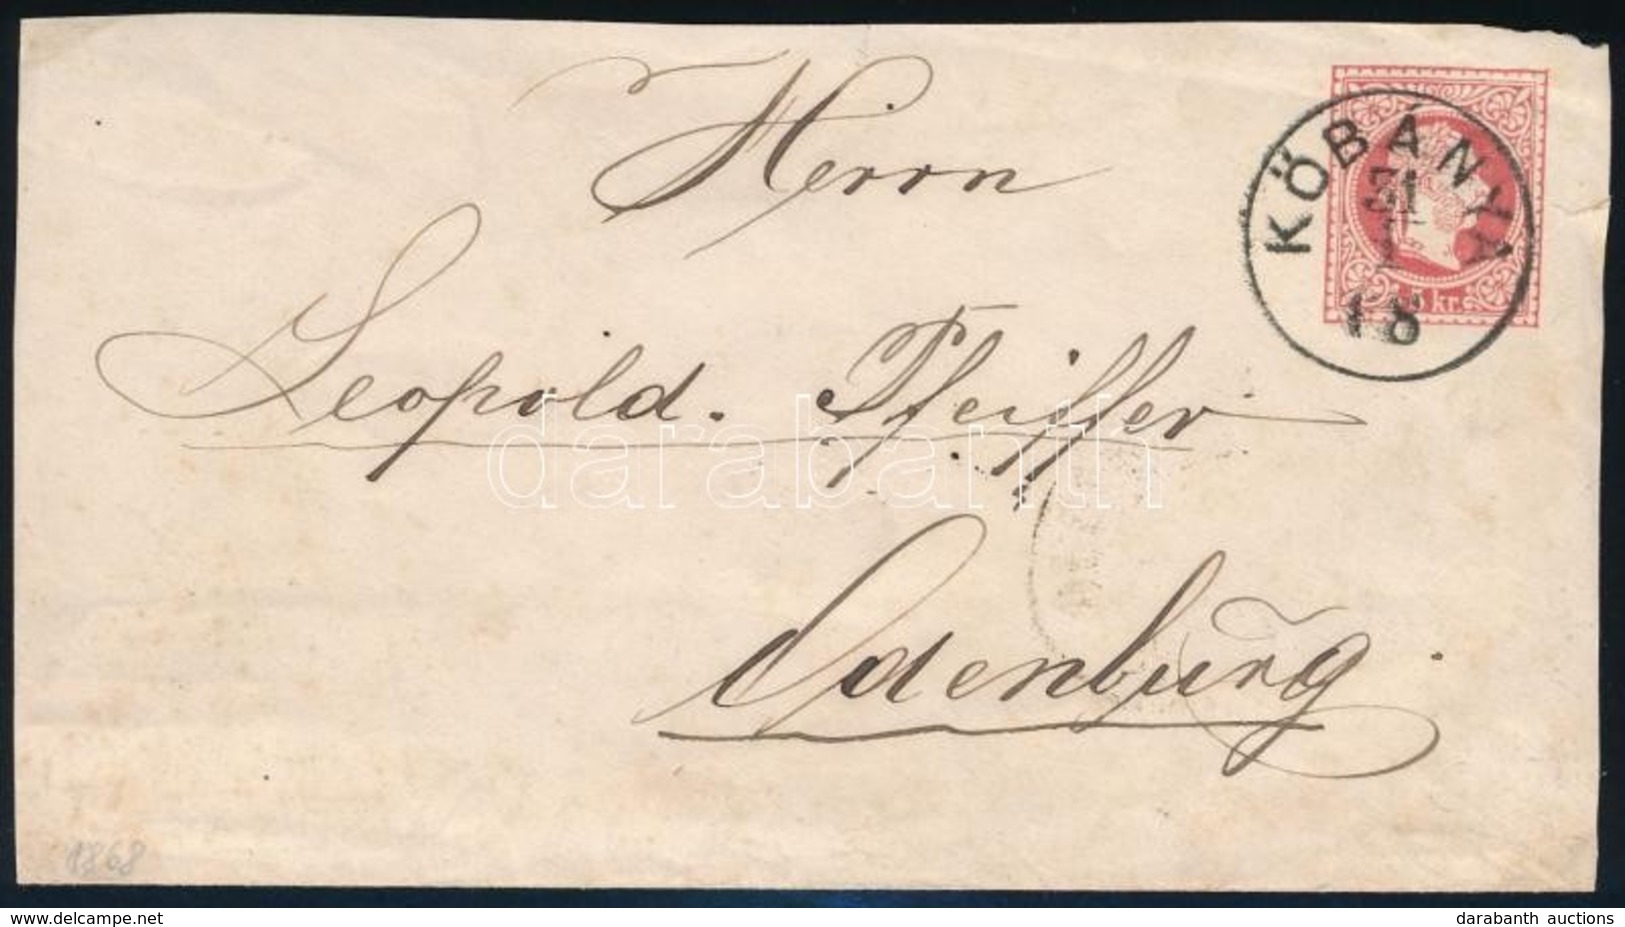 Herrn
KÖBÁNYA
31
1
5 kr.
Leopold. Pfeiffer
darabanth
Odenburg
1868
© delcampe.net
darabanth auctions